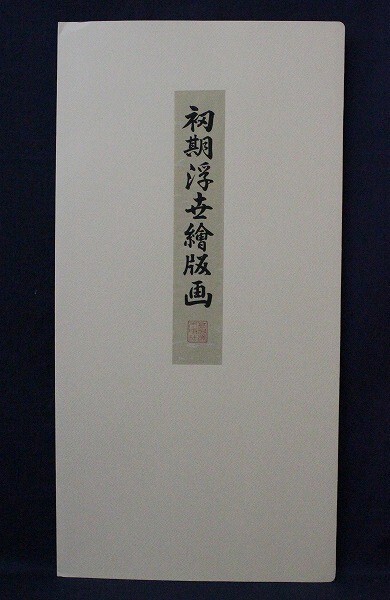 初期浮世繪版画